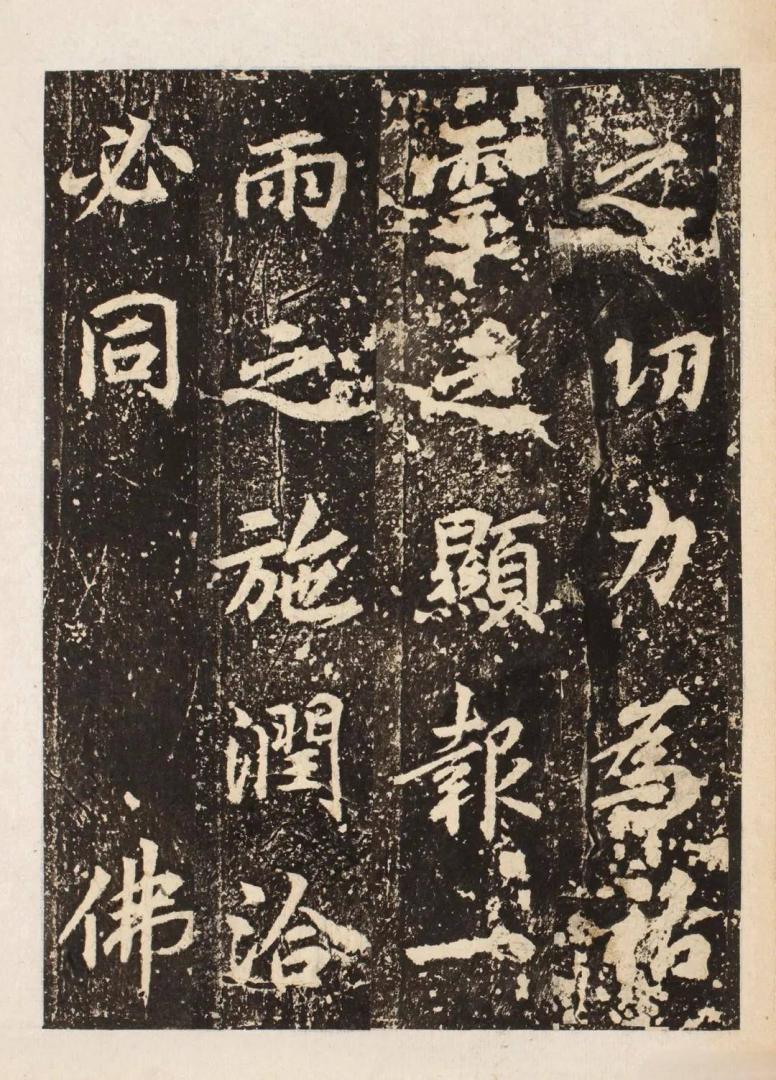 之切力為祐
靈之顯報一
雨之施潤洽
必同佛